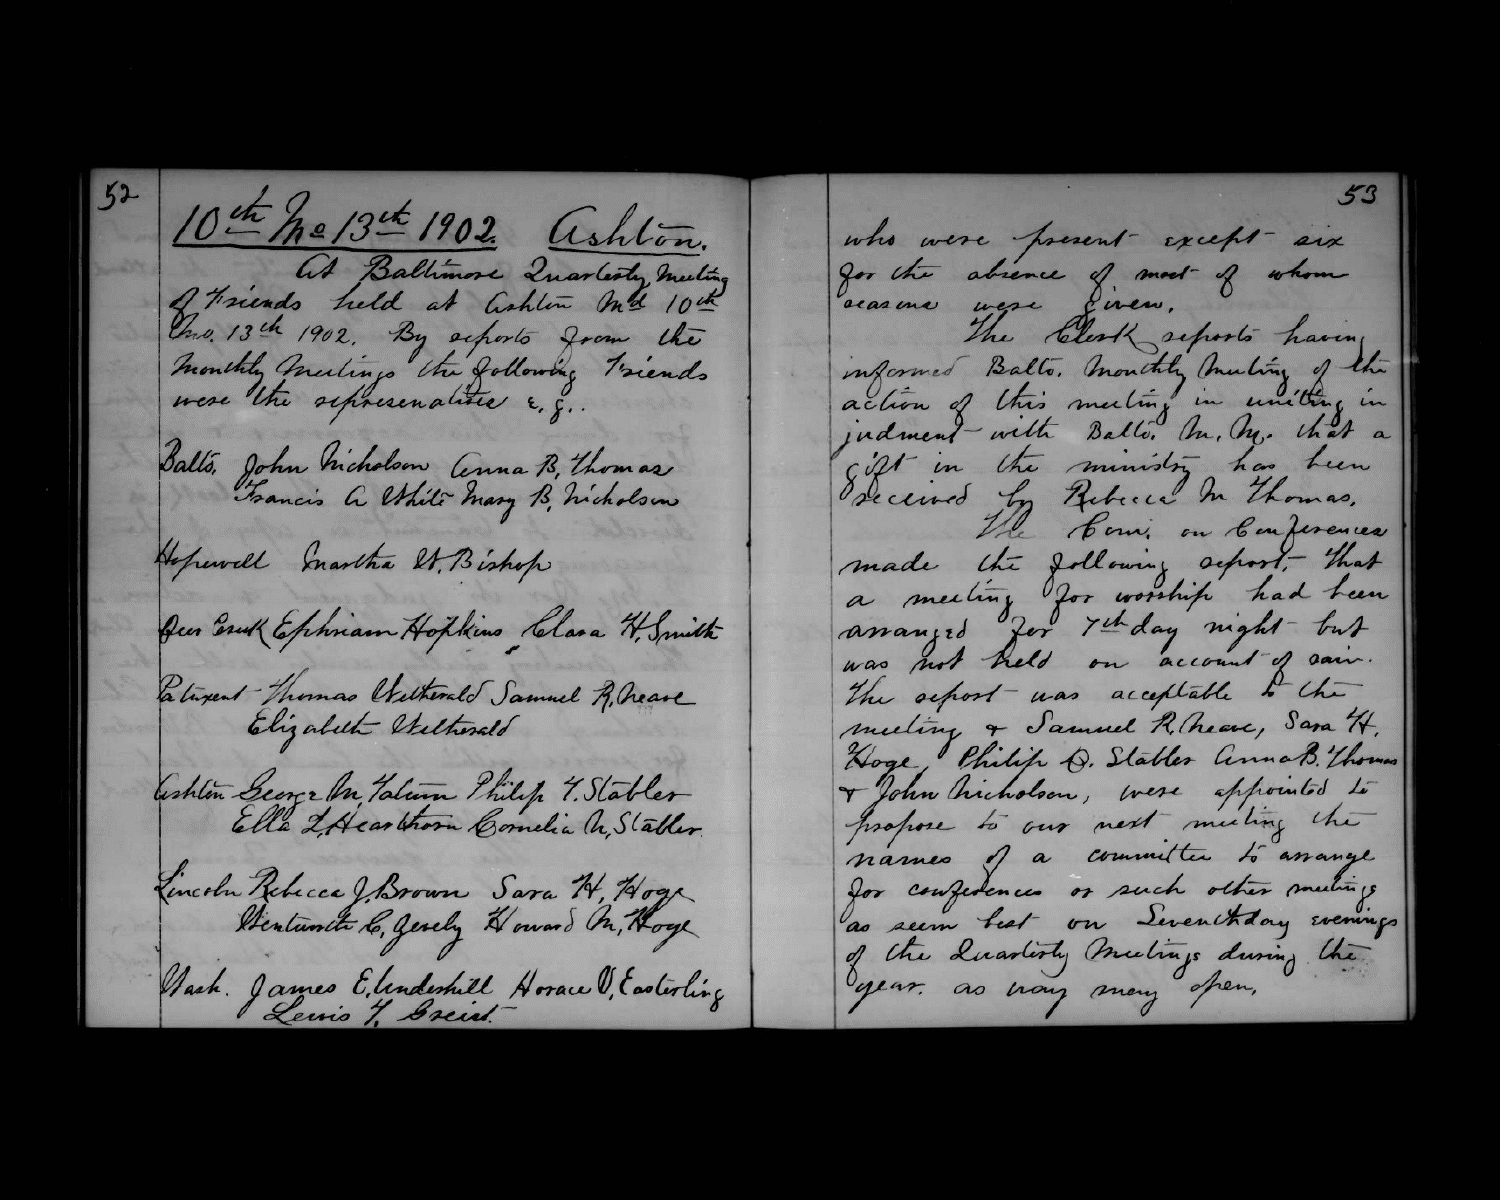 52
10th Mo 13th 1902. Ashton.
At Baltimore Quarterly Meeting
of Friends held at Ashton Md 10th
Mo. 13th 1902. By reports from the
Monthly Meetings the following Friends
were the represenatives
Balto. John Nicholson Anna B. Thomas
Francis A White Mary B. Nicholson
Hopewell Martha W. Bishop
Deer Creek Ephriam Hopkins Clara H. Smith
Patuxent Thomas Wetherald Samuel R. Neave
Elizabeth Wetherald
Ashton George M. Tatum Philip T. Stabler
Ella L. Hearthorn Cornelia N. Stabler.
Lincoln Rebecca J. Brown Sara H. Hoge
Howard M. Hoge
Wash. James E. Underhill Horace V. Easterling
Lewis T. Greist.
53
who were present except six
for the absence of most of whom
reasons were given.
The Clerk reports having
informed Balto. Monthly Meeting of the
action of this meeting in uniting in
judment with Balto. M. M. that a
gift in the ministry has been
received by Rebecca M Thomas.
The Com. on Conferences
made the following report, that
a meeting for worship had been
arranged for 7th day night but
was not held on account of rain.
The report was acceptable to the
meeting & Samuel R. Neave, Sara H.
Hoge, Philip Stabler Anna B. Thomas
& John Nicholson, were appointed to
propose to our next meeting the
names of a committee to arrange
for conferences or such other meetings
as seem best on Seventhday evenings
of the Quarterly Meetings during the
year. as way may open.